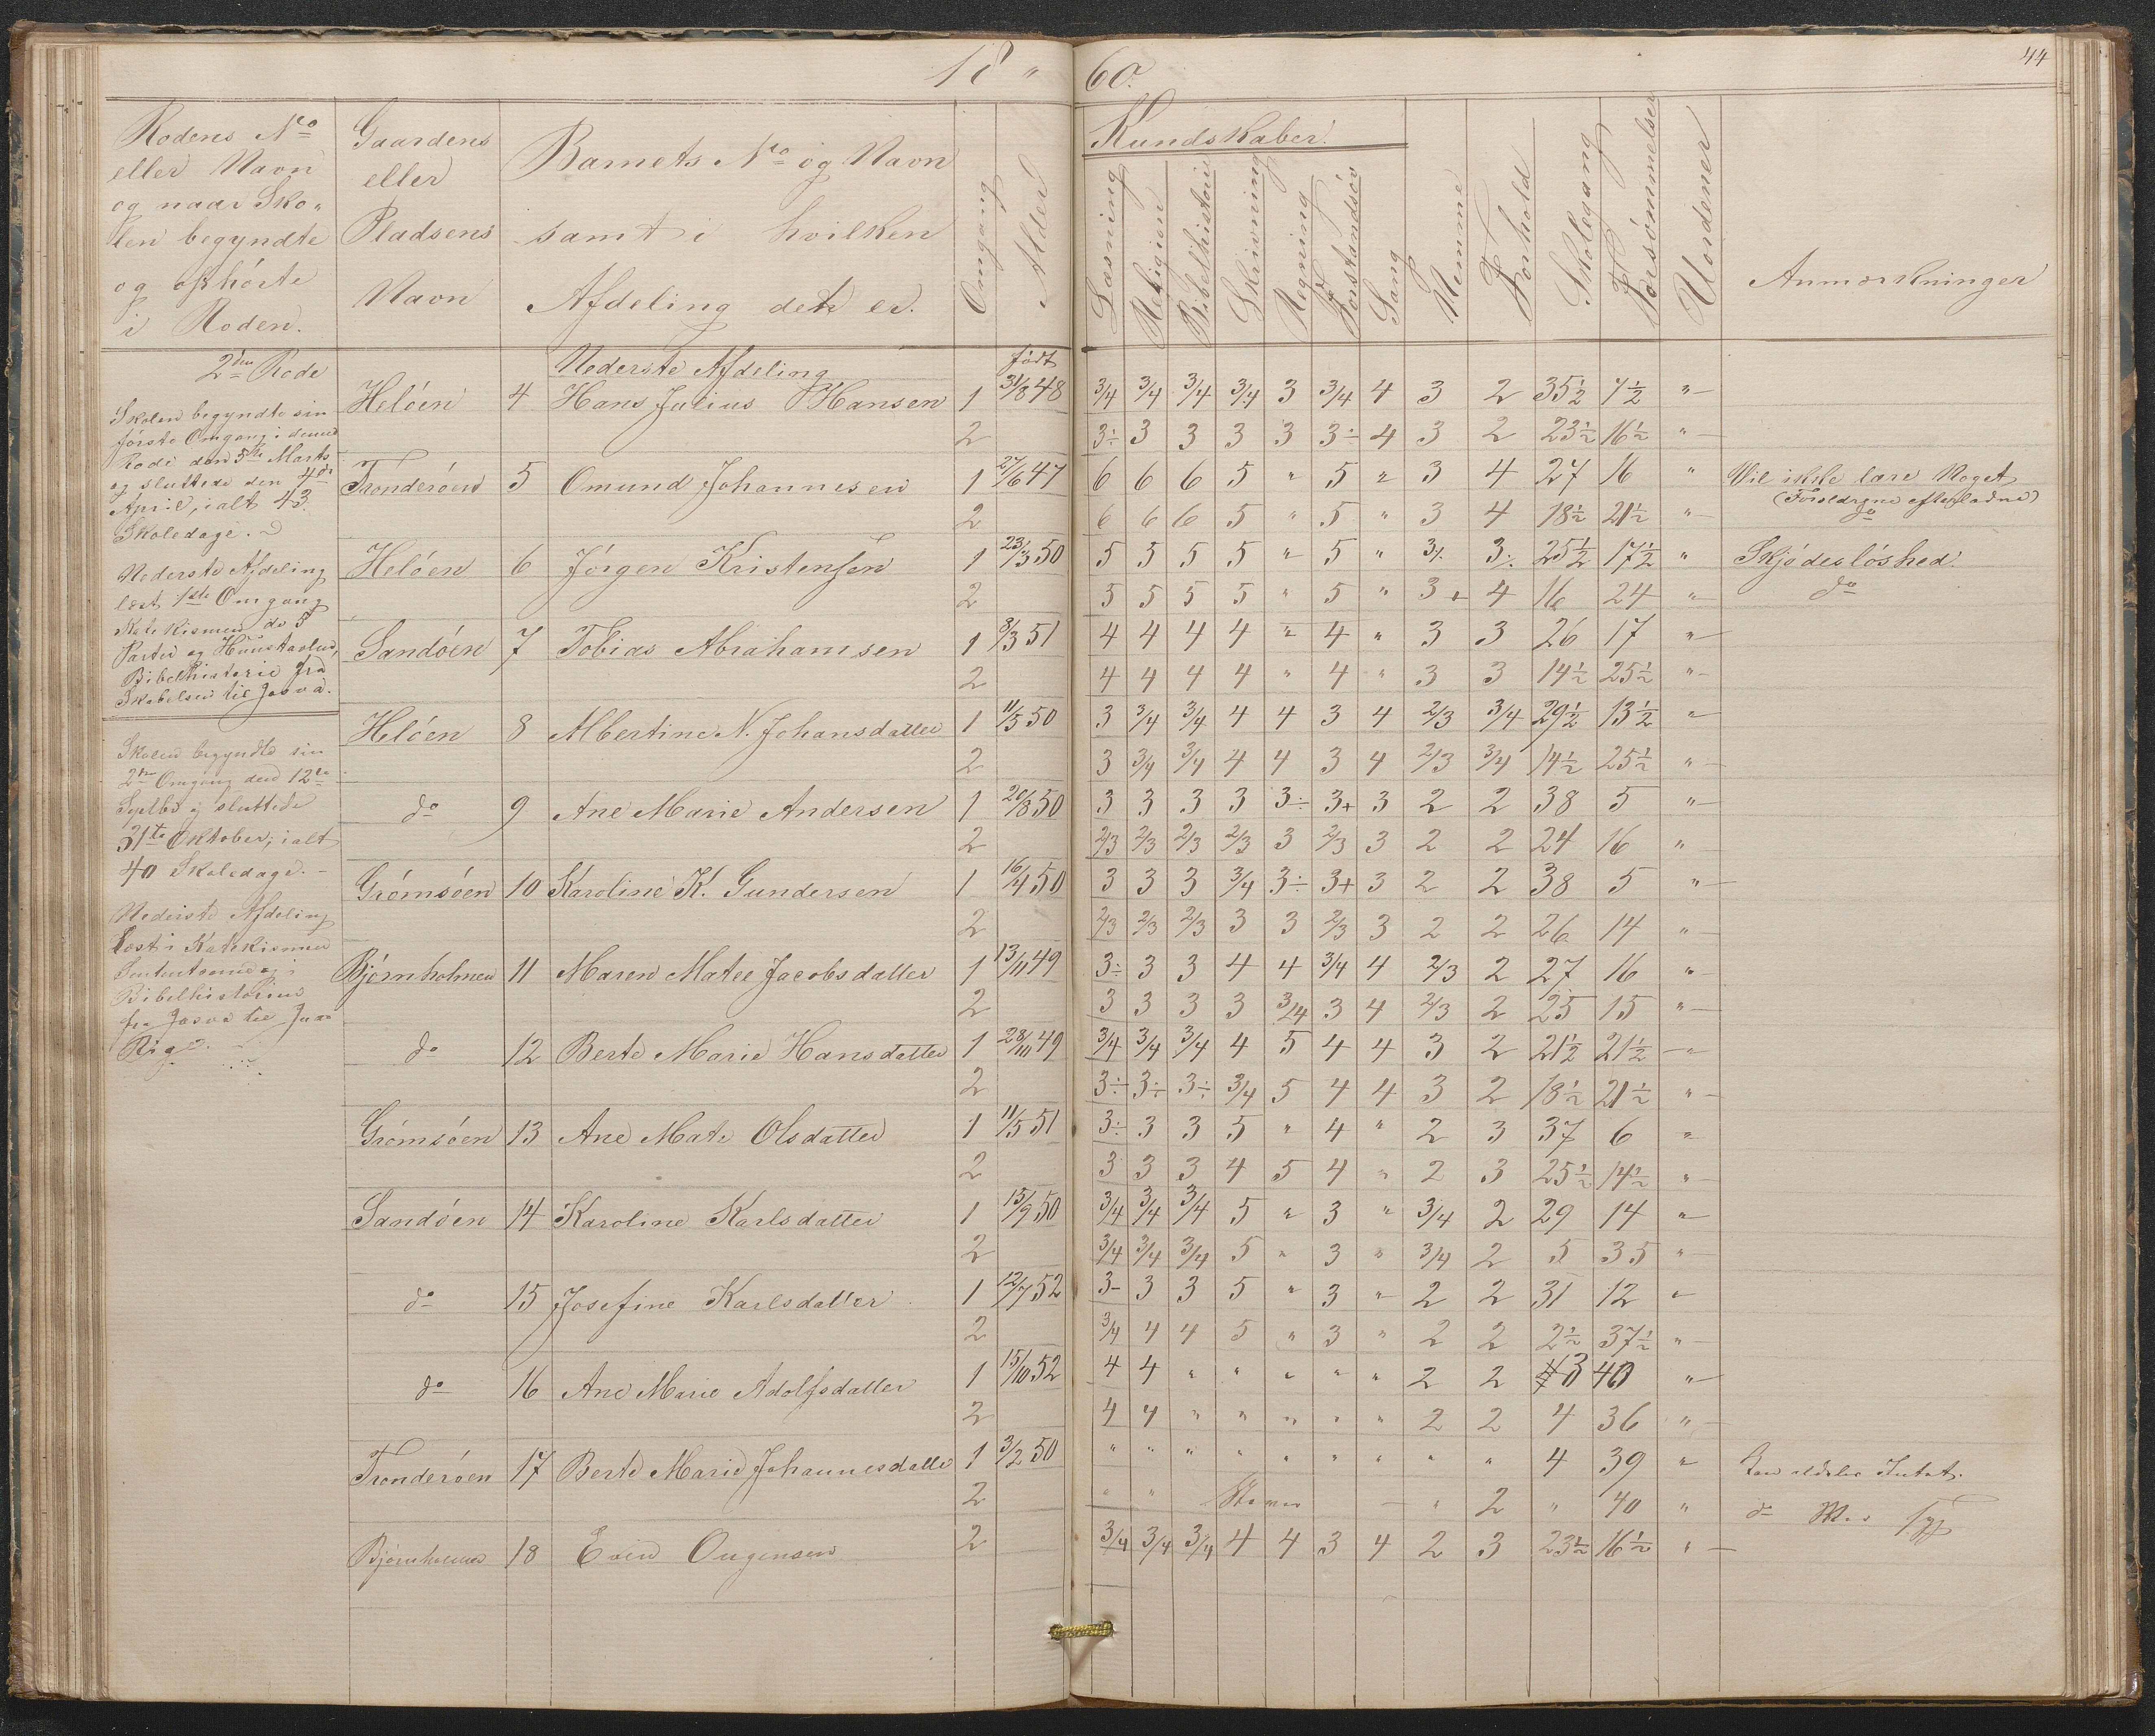 18 " 60.
44
Rodens No
eller Navn
og naar Sko"
len begyndte
og ophörte
i Roden.
Gaardens
eller
Pladsens
Navn
Barnets No og Navn
samt i hvilken
Afdeling det er.
Omgang
Alder
Kundskaber.
Læsning
Religion
Bibelhistorie
Skrivning
Regning
Forstandsöv
Sang
Nemme
Forhold
Skolegang
Forsömmelser
Uordener
Anmærkninger
2den Rode
Skolen begyndte sin
förste Omgang i denne
Rode den 5te Marts
og sluttede den 4de
April, ialt 43
Skoledage.
Nederste Afdeling
læst 1ste Omgang
Katekismen de 5
Parter og Huustavlen,
Bibelhistorie fra
Skabelsen til Josva.
Skolen begyndte sin
2den Omgang den 12te
Septbr og sluttede
31te Oktober, ialt
40 Skoledage.
Nederste Afdeling
læst i Katekismen
i
Bibelhistorien
fra Josva til
Rige.
Nederste Afdeling
födt
Helöen 4 Hans Julius Hansen 1 31/8 48 3/4 3/4 3/4 3/4 3 3/4 4 3 2 35½ 7½ "
2 3÷ 3 3 3 3 3÷ 4 3 2 23½ 16½ "
Tronderöen 5 Omund Johannesen 1 27/6 47 6 6 6 5 " 5 " 3 4 27 16 " Vil ikke lære Noget
(Forældrene efterladne)
2 6 6 6 5 " 5 " 3 4 18½ 21½ " do
Helöen 6 Jörgen Kristensen 1 23/3 50 5 5 5 5 " 5 " 3÷ 3÷ 25½ 17½ " Skjödeslöshed.
2 5 5 5 5 " 5 " 3+ 4 16 24 " do
Sandöen 7 Tobias Abrahamsen 1 8/3 51 4 4 4 4 " 4 " 3 3 26 17 "
2 4 4 4 4 " 4 " 3 3 14½ 25½ "
Helöen 8 Albertine N. Johansdatter 1 11/5 50 3 3/4 3/4 4 4 3 4 2/3 3/4 29½ 13½ "
2 3 3/4 3/4 4 4 3 4 2/3 3/4 14½ 25½ "
do 9 Ane Marie Andersen 1 20/8 50 3 3 3 3 3÷ 3+ 3 2 2 38 5 "
2 2/3 2/3 2/3 2/3 3 2/3 3 2 2 24 16 "
Grömsöen 10 Karoline K. Gundersen 1 16/4 50 3 3 3 3/4 3÷ 3+ 3 2 2 38 5 "
2 2/3 2/3 2/3 3 3 2/3 3 2 2 26 14 "
Björnholmen 11 Maren Matee Jacobsdatter 1 13/11 49 3÷ 3 3 4 4 3/4 4 2/3 2 27 16 "
2 3 3 3 3 3/4 3 4 2/3 2 25 15 "
do 12 Berte Marie Hansdatter 1 28/10 49 3/4 3/4 3/4 4 5 4 4 3 2 21½ 21½ "
2 3÷ 3÷ 3÷ 3/4 5 4 4 3 2 18½ 21½ "
Grömsöen 13 Ane Mate Olsdatter 1 11/5 51 3÷ 3 3 5 " 4 " 2 3 37 6 "
2 3 3 3 4 5 4 " 2 3 25½ 14½ "
Sandöen 14 Karoline Karlsdatter 1 15/9 50 3/4 3/4 3/4 5 " 3 " 3/4 2 29 14 "
2 3/4 3/4 3/4 5 " 3 " 3/4 2 5 35 "
do 15 Josefine Karlsdatter 1 12/7 52 3- 3 3 5 " 3 " 2 2 31 12 "
2 3/4 4 4 5 " 3 " 2 2 2½ 37½ "
do 16 Ane Marie Adolfsdatter 1 15/10 52 4 4 " " " " " 2 2 3 40 "
2 4 4 " " " " " 2 2 4 36 "
Tronderöen 17 Berte Marie Johannesdatter 1 3/2 50 " " " " " " " " " 4 39 " Kan aldeles Intet.
2 " " " 2 " 40 " do
Björnholmen 18 Even 2 3/4 3/4 3/4 4 4 3 4 2 3 23½ 16½ "